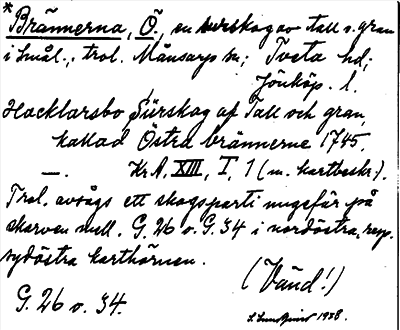 * Brännerna, Ö., en skog av tall o. gran
i Smål., trol. Månsarps sn; Tveta hd;
Jönköp. l.
Hacklarsbo Siirskog af Tall och gran,
kallad Östra brännerne 1745.
—. Kr.A. XIII, I, 1 (m. kartbeskr.).
Trol. avsågs ett skogsparti ungefär på
skarven mell. G. 26 o. G. 34 i nordöstra, resp.
sydöstra karthörnen.
(Vänd!)
G. 26 o. 34.
1938.